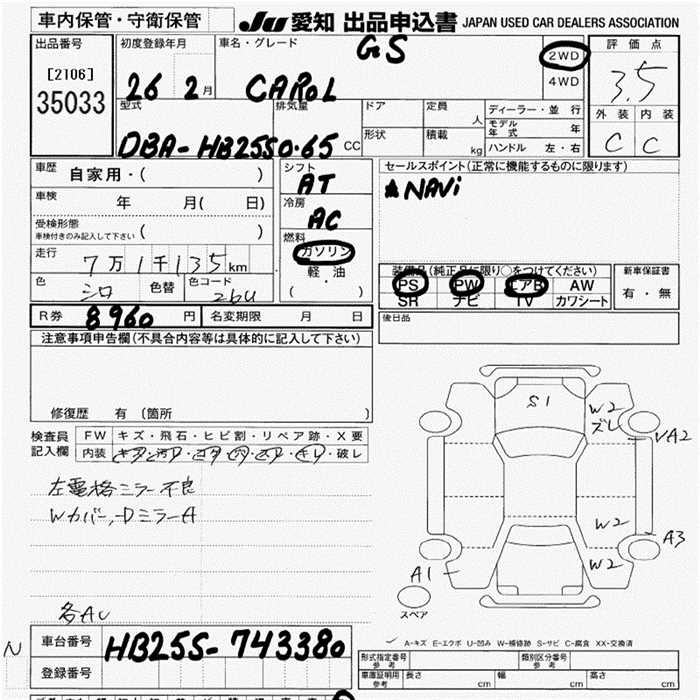 車内保管・守衛保管 JU 愛知 出品申込書 JAPAN USED CAR DEALERS ASSOCIATION
出品番号 初度登録年月 車名・グレード GS 2WD 4WD 評価点
[2106]
35033 26 2月 CAROL 3.5
型式 排気量 ドア 定員 人 ディーラー・並行 外装 内装
モデル年式 年
DBA-HB25S 0.65 CC 形状 積載 kg ハンドル 左・右 C C
車歴 自家用・( ) シフト AT セールスポイント(正常に機能するものに限ります)
車検 年 月( 日) 冷房 AC ★NAVi
受検形態 ( )
車検付きのみ記入して下さい
燃料 ガソリン・軽油 ( )
走行 7万1千135km 装備品(純正品に限り○をつけてください) 新車保証書
色 シロ 色替 色コード 26U PS PW エアB AW 有・無
SR ナビ TV カワシート
R券 8960円 名変期限 月 日 後日品
注意事項申告欄(不具合内容等は具体的に記入して下さい)
修復歴 有(箇所 )
検査員記入欄 FW キズ・飛石・ヒビ割・リペア跡・X要
内装 キズ・汚レ・コゲ・穴・スレ・キレ・破レ
左電格ミラー不良
Wカバー,Dミラー A
各AU
S1
W2
ズレ
VA2
W2
A3
W2
A1
スペア
A-キズ E-エクボ U-凹み W-補修跡 S-サビ C-腐食 XX-交換済
N 車台番号 HB25S-743380
登録番号
形式指定番号 参考 類別区分番号 参考
車庫証明用 参考 長さ cm 幅 cm 高さ cm